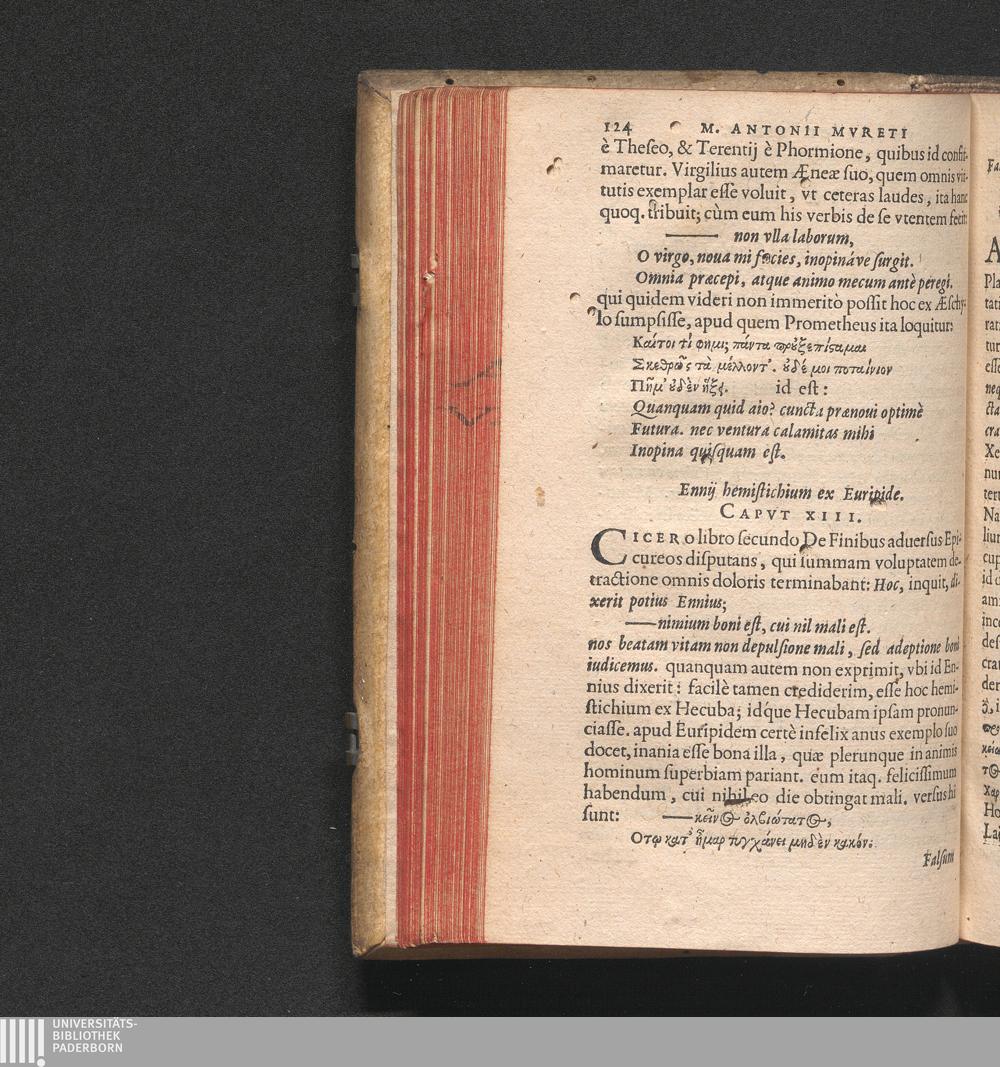 124 M. ANTONII MVRETI
è Theſeo, & Terentij è Phormione, quibus id confir-
maretur. Virgilius autem Æneæ ſuo, quem omnis vir-
tutis exemplar eſſe voluit, vt ceteras laudes, ita hanc
quoq. tribuit; cùm eum his verbis de ſe vtentem fecit:
—— non vlla laborum,
O virgo, noua mi facies, inopináve ſurgit.
Omnia præcepi, atque animo mecum antè peregi.
qui quidem videri non immeritò poſſit hoc ex Æſchy-
lo ſumpſiſſe, apud quem Prometheus ita loquitur:
Καίτοι τί φημι; πάντα προὐξεπίσταμαι
Σκεθρῶς τὰ μέλλοντ'. οὐδέ μοι ποταίνιον
Πῆμ' οὐδὲν ἥξει. id eſt:
Quanquam quid aio? cuncta prænoui optimè
Futura. nec ventura calamitas mihi
Inopina quiſquam eſt.
Ennij hemiſtichium ex Euripide.
CAPVT XIII.
CICERO libro ſecundo De Finibus aduerſus Epi-
cureos diſputans, qui ſummam voluptatem de-
tractione omnis doloris terminabant: Hoc, inquit, di-
xerit potius Ennius;
—— nimium boni eſt, cui nil mali eſt.
nos beatam vitam non depulſione mali, ſed adeptione boni
iudicemus. quanquam autem non exprimit, vbi id En-
nius dixerit: facilè tamen crediderim, eſſe hoc hemi-
ſtichium ex Hecuba; idq́ue Hecubam ipſam pronun-
ciaſſe. apud Euripidem certè infelix anus exemplo ſuo
docet, inania eſſe bona illa, quæ plerunque in animis
hominum ſuperbiam pariant. eum itaq. feliciſſimum
habendum, cui nihil eo die obtingat mali. verſus hi
ſunt: —— κεῖνος ὀλβιώτατος,
Οτῳ κατ' ἦμαρ τυγχάνει μηδὲν κακόν.
Falſum
UNIVERSITÄTS-
BIBLIOTHEK
PADERBORN